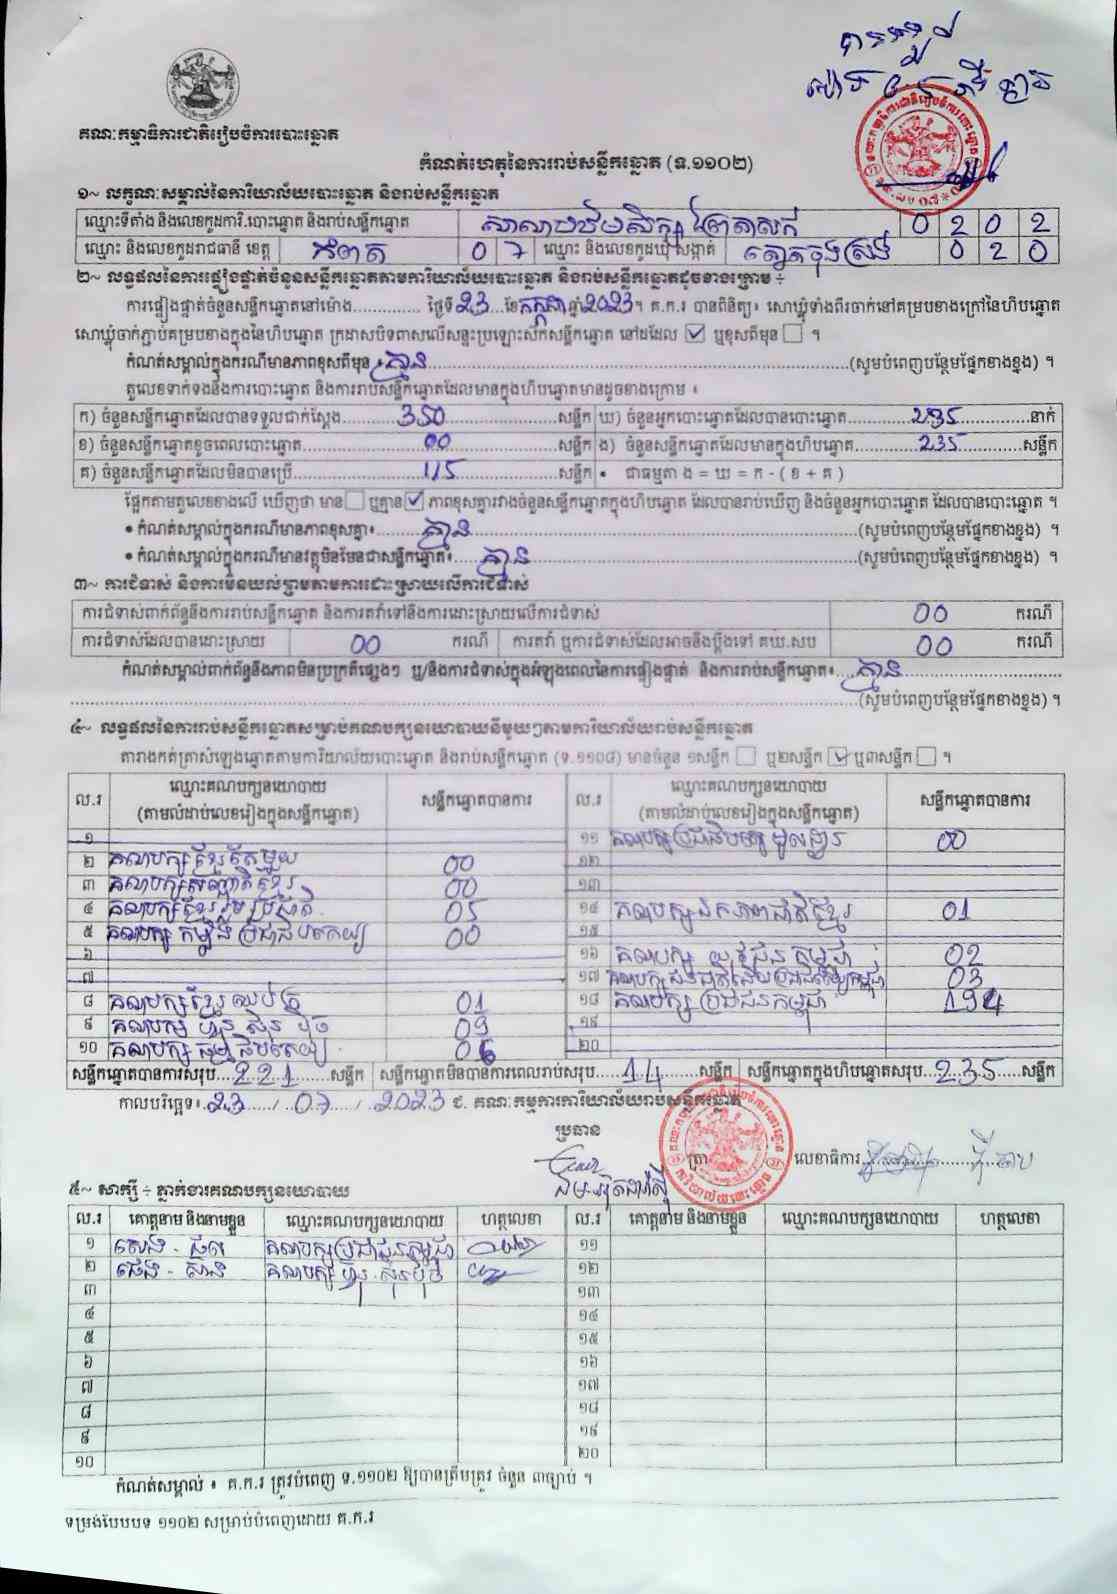 គណៈកម្មាធិការជាតិរៀបចំការបោះឆ្នោត
កំណត់ហេតុនៃការរាប់សន្លឹកឆ្នោត (ទ.១១០២)
១~ លក្ខណៈសម្គាល់នៃការិយាល័យបោះឆ្នោត និងរាប់សន្លឹកឆ្នោត
ឈ្មោះទីតាំង និងលេខកូដការិ.បោះឆ្នោត និងរាប់សន្លឹកឆ្នោត សាលាបឋមសិក្សា 0 2 0 2
ឈ្មោះ និងលេខកូដរាជធានី ខេត្ត កំពត 0 7 ឈ្មោះ និងលេខកូដឃុំ សង្កាត់ ត្បូងចុងស្រង់ 0 2 0
២~ លទ្ធផលនៃការផ្ទៀងផ្ទាត់ចំនួនសន្លឹកឆ្នោតតាមការិយាល័យបោះឆ្នោត និងរាប់សន្លឹកឆ្នោតដូចខាងក្រោម ÷
ការផ្ទៀងផ្ទាត់ចំនួនសន្លឹកឆ្នោតនៅម៉ោង............... ថ្ងៃទី 23 ខែ កក្កដា ឆ្នាំ 2023។ គ.ក.រ បានពិនិត្យ៖ សោឃ្លុំទាំងពីរចាក់នៅគម្របខាងក្រៅនៃហិបឆ្នោត
សោឃ្លុំចាក់ភ្ជាប់គម្របខាងក្នុងនៃហិបឆ្នោត ក្រដាសបិទពាសលើសន្ទះប្រឡោះស៊កសន្លឹកឆ្នោត នៅដដែល ☑ ឬខុសពីមុន ☐ ។
កំណត់សម្គាល់ក្នុងករណីមានភាពខុសពីមុន ៖ គ្មាន (សូមបំពេញបន្ថែមផ្នែកខាងខ្នង) ។
តួលេខទាក់ទងនឹងការបោះឆ្នោត និងការរាប់សន្លឹកឆ្នោតដែលមានក្នុងហិបឆ្នោតមានដូចខាងក្រោម ៖
ក) ចំនួនសន្លឹកឆ្នោតដែលបានទទួលជាក់ស្តែង 350 សន្លឹក ឃ) ចំនួនអ្នកបោះឆ្នោតដែលបានបោះឆ្នោត 235 នាក់
ខ) ចំនួនសន្លឹកឆ្នោតខូចពេលបោះឆ្នោត 00 សន្លឹក ង) ចំនួនសន្លឹកឆ្នោតដែលមានក្នុងហិបឆ្នោត 235 សន្លឹក
គ) ចំនួនសន្លឹកឆ្នោតដែលមិនបានប្រើ 115 សន្លឹក • ជាធម្មតា ង = ឃ = ក - ( ខ + គ )
ផ្អែកតាមតួលេខខាងលើ ឃើញថា មាន ☐ ឬគ្មាន ☑ ភាពខុសគ្នារវាងចំនួនសន្លឹកឆ្នោតក្នុងហិបឆ្នោត ដែលបានរាប់ឃើញ និងចំនួនអ្នកបោះឆ្នោត ដែលបានបោះឆ្នោត ។
• កំណត់សម្គាល់ក្នុងករណីមានភាពខុសគ្នា៖ គ្មាន (សូមបំពេញបន្ថែមផ្នែកខាងខ្នង) ។
• កំណត់សម្គាល់ក្នុងករណីមានវត្ថុមិនមែនជាសន្លឹកឆ្នោត៖ គ្មាន (សូមបំពេញបន្ថែមផ្នែកខាងខ្នង) ។
៣~ ការជំទាស់ និងការមិនយល់ព្រមតាមការដោះស្រាយលើការជំទាស់
ការជំទាស់ពាក់ព័ន្ធនឹងការរាប់សន្លឹកឆ្នោត និងការតវ៉ាទៅនឹងការដោះស្រាយលើការជំទាស់ 00 ករណី
ការជំទាស់ដែលបានដោះស្រាយ 00 ករណី ការតវ៉ា ឬការជំទាស់ដែលអាចនឹងប្តឹងទៅ គឃ.សប 00 ករណី
កំណត់សម្គាល់ពាក់ព័ន្ធនឹងភាពមិនប្រក្រតីផ្សេងៗ ឬ/និងការជំទាស់ក្នុងអំឡុងពេលនៃការផ្ទៀងផ្ទាត់ និងការរាប់សន្លឹកឆ្នោត៖ គ្មាន
(សូមបំពេញបន្ថែមផ្នែកខាងខ្នង) ។
៤~ លទ្ធផលនៃការរាប់សន្លឹកឆ្នោតសម្រាប់គណបក្សនយោបាយនីមួយៗតាមការិយាល័យរាប់សន្លឹកឆ្នោត
តារាងកត់ត្រាសំឡេងឆ្នោតតាមការិយាល័យបោះឆ្នោត និងរាប់សន្លឹកឆ្នោត (ទ.១១០៨) មានចំនួន ១សន្លឹក ☐ ឬ២សន្លឹក ☑ ឬ៣សន្លឹក ☐ ។
ល.រ ឈ្មោះគណបក្សនយោបាយ (តាមលំដាប់លេខរៀងក្នុងសន្លឹកឆ្នោត) សន្លឹកឆ្នោតបានការ ល.រ ឈ្មោះគណបក្សនយោបាយ (តាមលំដាប់លេខរៀងក្នុងសន្លឹកឆ្នោត) សន្លឹកឆ្នោតបានការ
១ ១១ គណបក្សប្រជាធិបតេយ្យមូលដ្ឋាន 00
២ គណបក្សខ្មែរតែមួយ 00 ១២
៣ គណបក្សសញ្ជាតិខ្មែរ 00 ១៣
៤ គណបក្សខ្មែររួបរួមជាតិ 05 ១៤ គណបក្សឯកភាពជាតិខ្មែរ 01
៥ គណបក្សកម្លាំងប្រជាធិបតេយ្យ 00 ១៥
៦ ១៦ គណបក្សយុវជនកម្ពុជា 02
៧ ១៧ គណបក្សជនជាតិដើមប្រជាធិបតេយ្យកម្ពុជា 03
៨ គណបក្សខ្មែរឈប់ក្រ 01 ១៨ គណបក្សប្រជាជនកម្ពុជា 194
៩ គណបក្សហ៊្វុនស៊ិនប៉ិច 09 ១៩
១០ គណបក្សធម្មាធិបតេយ្យ 06 ២០
សន្លឹកឆ្នោតបានការសរុប 221 សន្លឹក សន្លឹកឆ្នោតមិនបានការពេលរាប់សរុប 14 សន្លឹក សន្លឹកឆ្នោតក្នុងហិបឆ្នោតសរុប 235 សន្លឹក
កាលបរិច្ឆេទ៖ 23 / 07 / 2023 ជ. គណៈកម្មការការិយាល័យរាប់សន្លឹកឆ្នោត
ប្រធាន
ត្រា លេខាធិការ
៥~ សាក្សី ÷ ភ្នាក់ងារគណបក្សនយោបាយ
ល.រ គោត្តនាម និងនាមខ្លួន ឈ្មោះគណបក្សនយោបាយ ហត្ថលេខា ល.រ គោត្តនាម និងនាមខ្លួន ឈ្មោះគណបក្សនយោបាយ ហត្ថលេខា
១ គណបក្សប្រជាជនកម្ពុជា ១១
២ គណបក្សហ៊្វុនស៊ិនប៉ិច ១២
៣ ១៣
៤ ១៤
៥ ១៥
៦ ១៦
៧ ១៧
៨ ១៨
៩ ១៩
១០ ២០
កំណត់សម្គាល់ ៖ គ.ក.រ ត្រូវបំពេញ ទ.១១០២ ឱ្យបានត្រឹមត្រូវ ចំនួន ៣ច្បាប់ ។
ទម្រង់បែបបទ ១១០២ សម្រាប់បំពេញដោយ គ.ក.រ